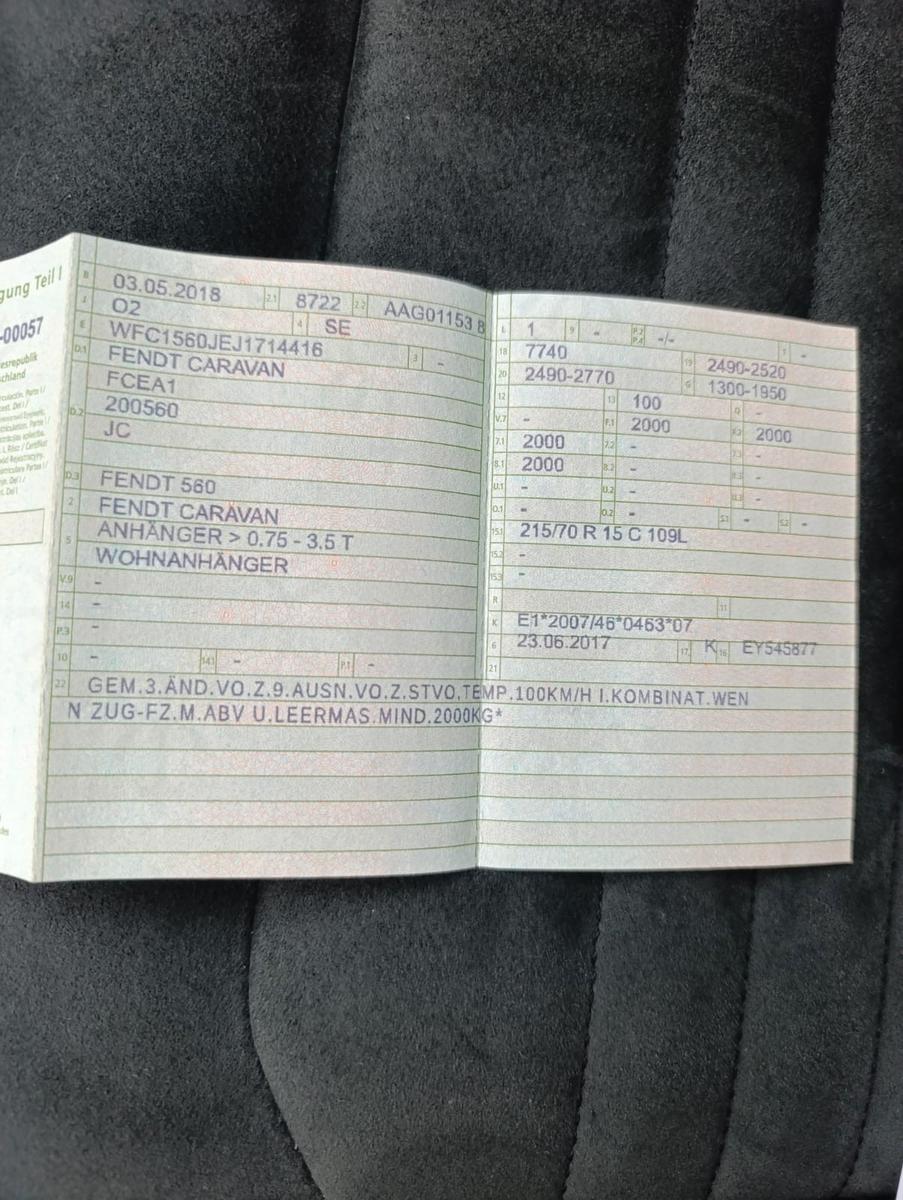 gung Teil I
-00057
esrepublik
schland
B 03.05.2018 2.1 8722 2.2 AAG01153 8
J O2 4 SE
E WFC1560JEJ1714416 3 -
D.1 FENDT CARAVAN
FCEA1
D.2 200560
JC
D.3 FENDT 560
2 FENDT CARAVAN
5 ANHÄNGER > 0.75 - 3.5 T
WOHNANHÄNGER
V.9 -
14 -
P.3 -
10 - 14.1 - P.1 -
L 1 9 - P.2 P.4 -/- T -
18 7740 19 2490-2520
20 2490-2770 G 1300-1950
12 - 13 100 Q -
V.7 - F.1 2000 F.2 2000
7.1 2000 7.2 - 7.3 -
8.1 2000 8.2 - 8.3 -
U.1 - U.2 - U.3 -
O.1 - O.2 - S.1 - S.2 -
15.1 215/70 R 15 C 109L
15.2 -
15.3 -
R 11
K E1*2007/46*0463*07
6 23.06.2017 17 K 16 EY545877
21
22 GEM.3.ÄND.VO.Z.9.AUSN.VO.Z.STVO.TEMP.100KM/H I.KOMBINAT.WEN
N ZUG-FZ.M.ABV U.LEERMAS.MIND.2000KG*